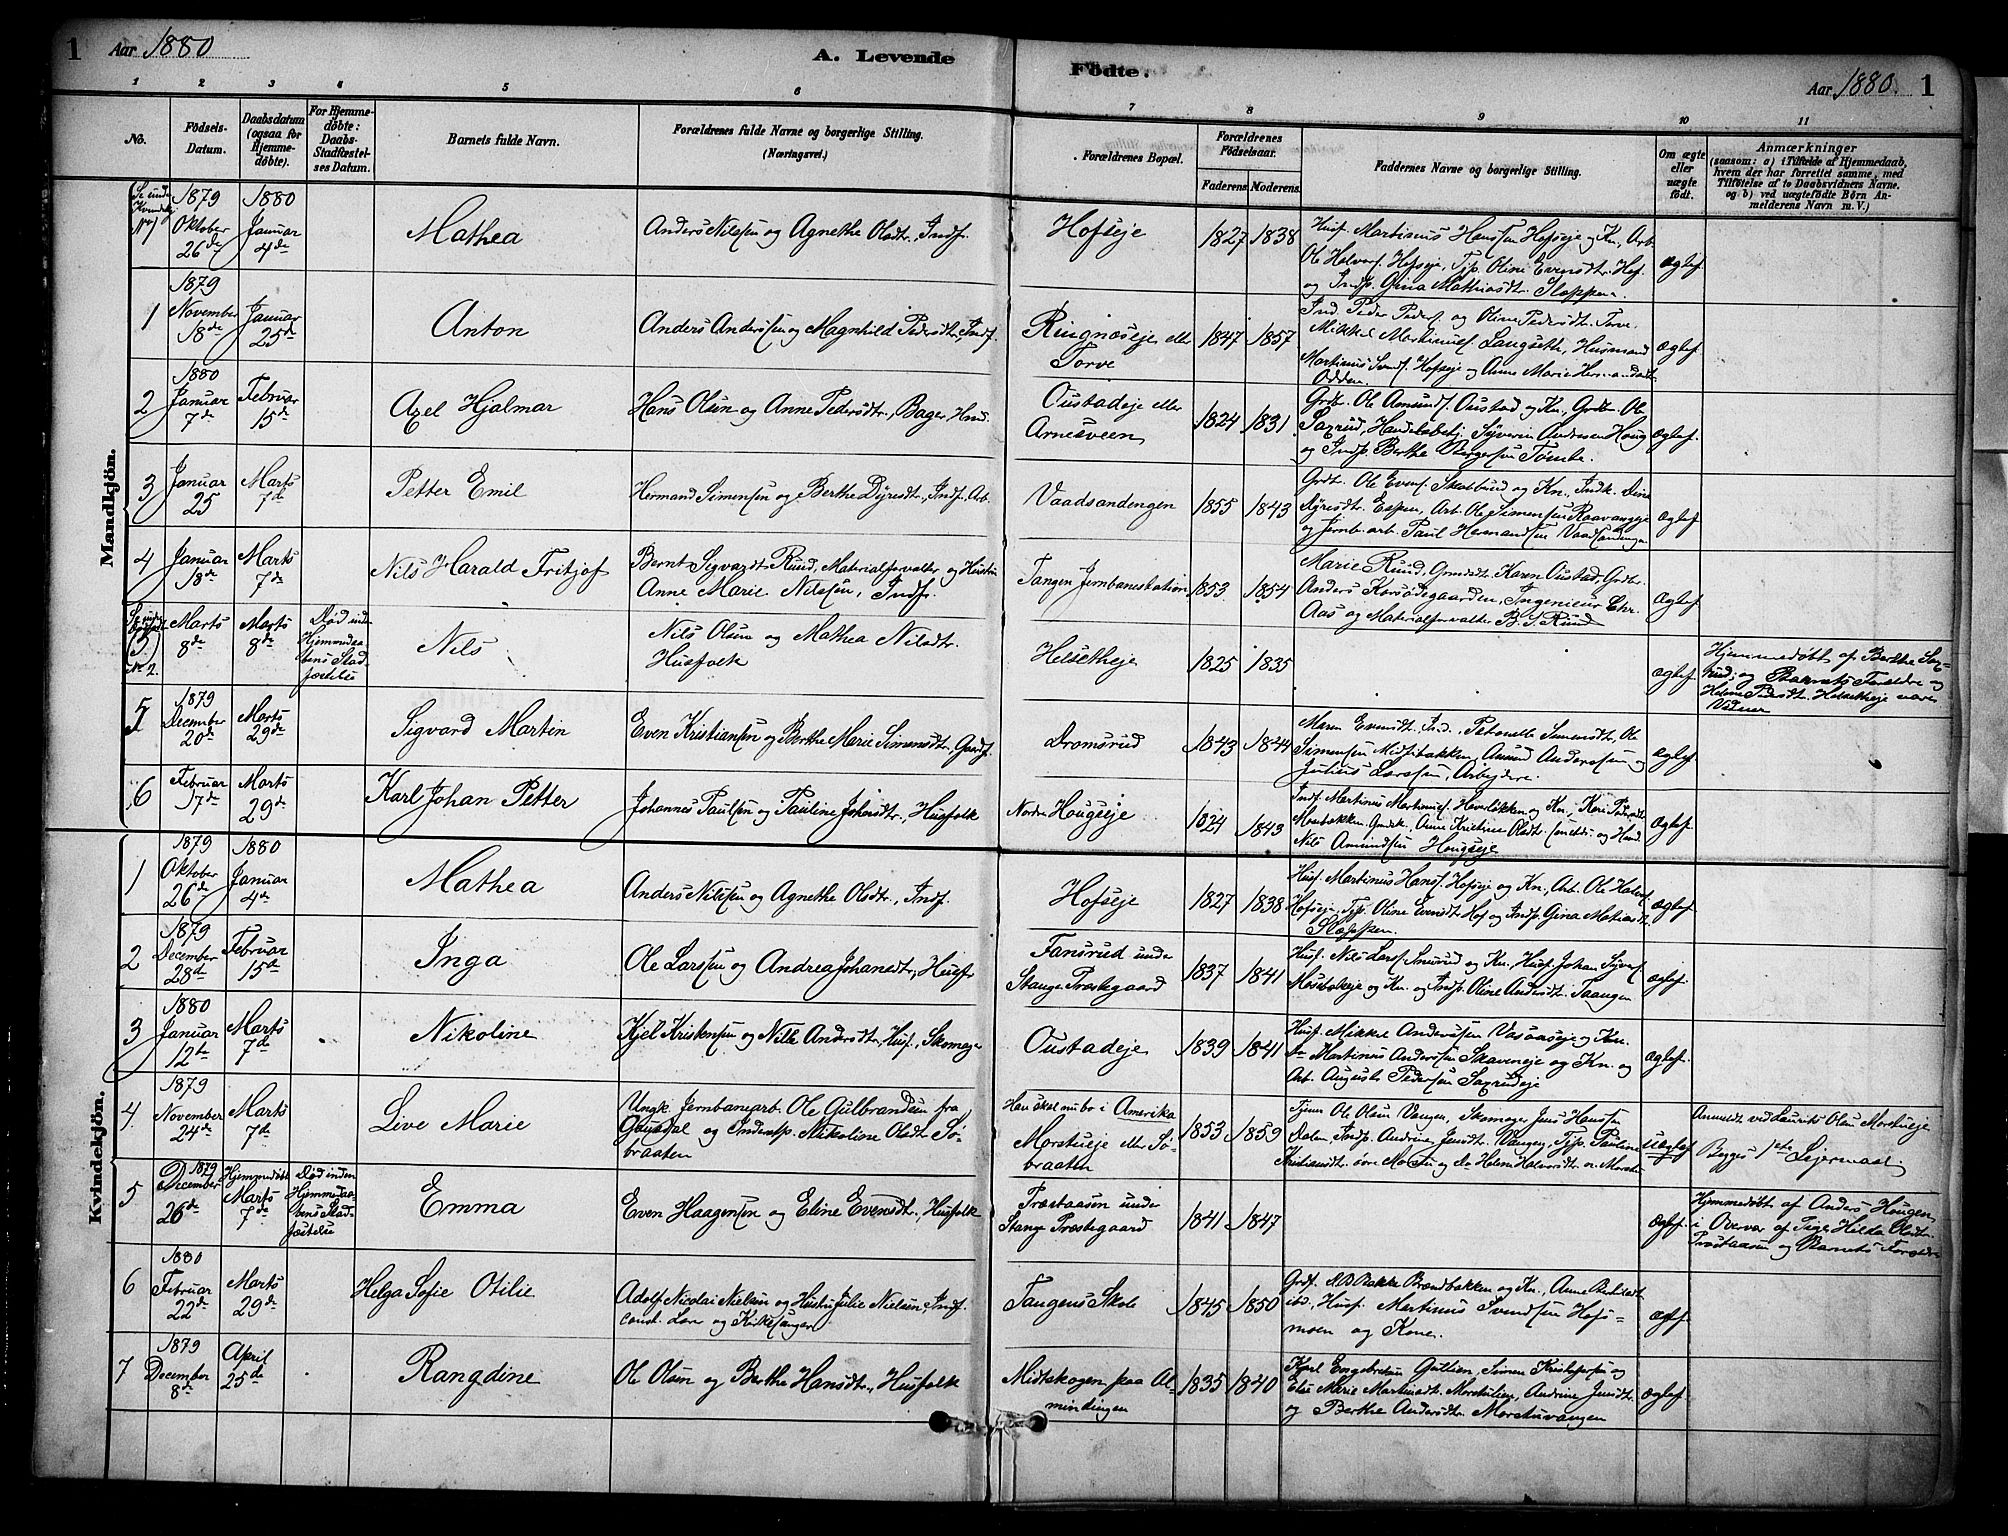 1 Aar 1880 A. Levende Födte. Aar 1880. 1
1 2 3 4 5 6 7 8 9 10 11
No.
Födsels-
Datum.
Daabsdatum
(ogsaa for
Hjemme-
döbte).
For Hjemme-
döbte:
Daabs-
Stadfæstel-
ses Datum.
Barnets fulde Navn.
Forældrenes fulde Navne og borgerlige Stilling.
(Næringsvei.)
Forældrenes Bopæl.
Forældrenes
Födselsaar.
Faderens. Moderens.
Faddernes Navne og borgerlige Stilling.
Om ægte
eller
uægte
födt.
Anmærkninger
(saasom: a) i Tilfælde af Hjemmedaab,
hvem der har forrettet samme, med
Tilföielse af to Daabsvidners Navne.
og b) ved uægtefödte Börn An-
melderens Navn m. V.)
Mandkjön.
Se under
Kvindekj.
No 1
1879
Oktober
26de
1880
Januar
4de
Mathea
Anders Nilssen og Agnethe Olsdtr., Indf.
Hofseje
1827 1838
Husf. Martinus Hanssen Hofseje og Kn., Arb.
Ole Halvors. Hofseje, Tjp. Oline Evensdtr. Hof
og Indp. Gina Mathiasdtr. Sloppen.
Ægtef.
1
1879
November
18de
Januar
25de
Anton
Anders Anderssen og Magnhild Pedersdtr., Indf.
Ringnæseje eller
Torve
1847 1857
Ind. Peder Peders. og Oline Pedersdtr. Torve.
Mikkel Martinuss. Langseth, Husmand
Martinus Svends. Hofseje og Anne Marie Hermansdtr.
Odden.
Ægtef.
2
1880
Januar
7de
Februar
15de
Axel Hjalmar
Hans Olsen og Anne Pedersdtr., Bager, Hus.
Oustadeje eller
Arnesveen
1824 1831
Grdb. Ole Amunds. Oustad og Kn., Grdb. Ole
Saxrud, Handelsbetj. Syverin Andresen Houg
og Indp. Berthe Tømte.
Ægtef.
3
Januar
25
Marts
7de
Petter Emil
Hermand Simenssen og Berthe Dyresdtr., Indf., Arb.
Vaadsandengen
1855 1843
Grdb. Ole Evens. og Kn., Indk. Dine
Dyresdtr. Espen, Arb. Ole Simenssen Raavangeje
og Jernb.arb. Paul Hermandssen Vaadsandengen
Ægtef.
4
Januar
18de
Marts
7de
Nils Harald Fritjof
Bernt Sigvardt Ruud, Materialforvalter og Hustru
Anne Marie Nilssen, Indf.
Tangen Jernbanestation
1853. 1854
Marie Ruud, Karen Oustad, Grdbr.
Anders Korsødegaarden, Ingenieur Chr.
Aas og Materialforvalter B. S. Ruud
Ægtef.
No 2.
Marts
8de
Marts
8de
Død inden
Hjemmedaa-
bens Stad-
fæstelse
Nils
Nils Olsen og Mathea Nilsdtr.
Husfolk
Helsetheje
1825 1835
Ægtef.
Hjemmedøbt af Berthe Sax-
rud; og Barnets Forældre og
Helene Pedsdtr. Helsetheje vare
Vidner
5
1879
December
20de
Marts
29de
Sigvard Martin
Even Kristiansen og Berthe Marie Simensdtr., Gaardf.
Dromsrud
1843 1844
Maren Evensdtr. Ind., Petronelle Simensdtr., Ole
Simensen Midtibakken, Amund Anderssen og
Julius Larssen, Arbejdere.
Ægtef.
6
Februar
17de
Marts
29de
Karl Johan Petter
Johannes Paulsen og Pauline Johansdtr., Husfolk
Nordre Hougseje
1824 1843
Indf. Martinus Martinuss. Haverløkken og Kn., Kari Pedersdtr.
Moebakken, Anne Kristine Olsdtr.
Nils Amundsen Hougseje
Ægtef.
Kvindekjön.
1
1879
Oktober
26de
1880
Januar
4de
Mathea
Anders Nilssen og Agnethe Olsdtr., Indf.
Hofseje
1827 1838
Husf. Martinus Hanss. Hofseje og Kn., Arb. Ole Halvors.
Hofseje, Tjp. Oline Evensdtr. Hof og Indp. Gina Matiasdtr.
Sloppen.
Ægtef.
2
1879
December
28de
Februar
15de
Inga
Ole Larssen og Andrea Johanesdtr., Husf.
Fansrud under
Stange Præstegaard
1837 1841
Husf. Nils Larss. og Kn., Husf. Johan
Mosebakeje og Kn. og Indp. Oline Andersdtr. Taangen
Ægtef.
3
1880
Januar
12te
Marts
7de
Nikoline
Kjel Kristensen og Nille Andersdtr., Husf., Skomager
Oustadeje
1839 1841
Husf. Mikkel Anderssen Vasaaseje og Kn.
Do Martinus Anderssen Skaveneje og Kn. og
Arb. August Pedersen Saxrudeje
Ægtef.
4
1879
November
24de
Marts
7de
Live Marie
Ungk. Jernbanearb. Ole Gulbrandsen fra
Gausdal og Inderstp. Nikoline Olsdtr. Sø-
braaten
Han skal nu bo i Amerika
Morstueje eller Sø-
braaten
1853 1859
Tjener Ole Olsen Vangen, Skomager Jens Hanssen
Dalen, Indp. Andrine Jensdtr. Vangen, Tjp. Pauline
Kristiansdtr. øvre Morstu og do Helene Halvorsdtr. n. Morstu
Uægtef
Anmeldt ved Laurits Olsen Morstueje
Begges 1ste Lejermaal
5
1879
December
26de
Hjemmedøbt
Marts
7de
Død inden
Hjemmedaa-
bens Stad-
fæstelse
Emma
Even Haagensen og Eline Evensdtr., Husfolk
Præstaasen under
Stange Præstegaard
1841 1847
Ægtef.
Hjemmedøbt af Anders Hougen
i Overvær af Pige Hilda Olsdtr.
Præstaasen og Barnets Forældre
6
1880
Februar
22de
Marts
29de
Helga Sofie Otilie
Adolf Nicolai Nielsen og Hustru Julie Nielsen, Indf.
const. Lærer og Kirkesanger
Tangens Skole
1845 1850
Grdf. M B Bakke Brændbakken og Kn., Anne
ibd., Husf. Martinus Svendsen Hofs-
moen og Kone.
Ægtef.
7
1879
December
8de
April
25de
Rangdine
Ole Olsen og Berthe Hansdtr., Husfolk
Midtskogen paa Al-
mindingen
1835 1840
Karl Engebretsen Gutlien, Simen Kristofersen og
Else Marie Martinsdtr. Morstulien, Andrine Jensdtr.
og Berthe Andersdtr. Morstuvangen
Ægtef.